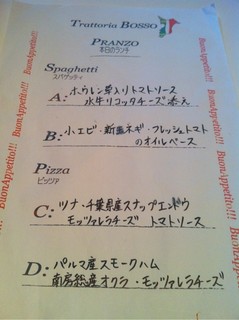 Trattoria BOSSO
PRANZO
本日のランチ
Spaghetti
スパゲッティ
A: ホウレン草入りトマトソース
水牛リコッタチーズ添え
B: 小エビ・新玉ネギ・フレッシュトマト
のオイルベース
Pizza
ピッツァ
C: ツナ・千葉県産スナップエンドウ
モッツァレラチーズ トマトソース
D: パルマ産スモークハム
南房総産オクラ・モッツァレラチーズ
BuonAppetito!!!
BuonAppetito!!!
BuonAppetito!!!
BuonAppetito!!!
BuonAppetito!!!
BuonAppetito!!!